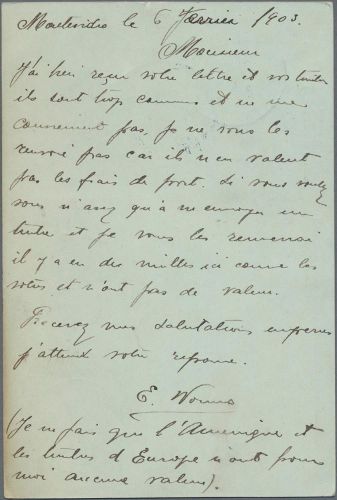 Montevideo le 6 Janvier 1903.
Monsieur
J'ai bien reçu votre lettre et vos timbres
ils sont trop communs et ne me
conviennent pas, je ne vous les
renvoie pas car ils n'en valent
pas les frais de port. Si vous voulez
vous n'avez qu'à m'envoyer un
timbre et je vous les renverrai
il y a en des milles ici comme les
votres et n'ont pas de valeur.
Recevez mes salutations empressées
j'attends votre réponse.
E.
(Je ne fais que l'Amerique et
les timbres d'Europe n'ont pour
moi aucune valeur).